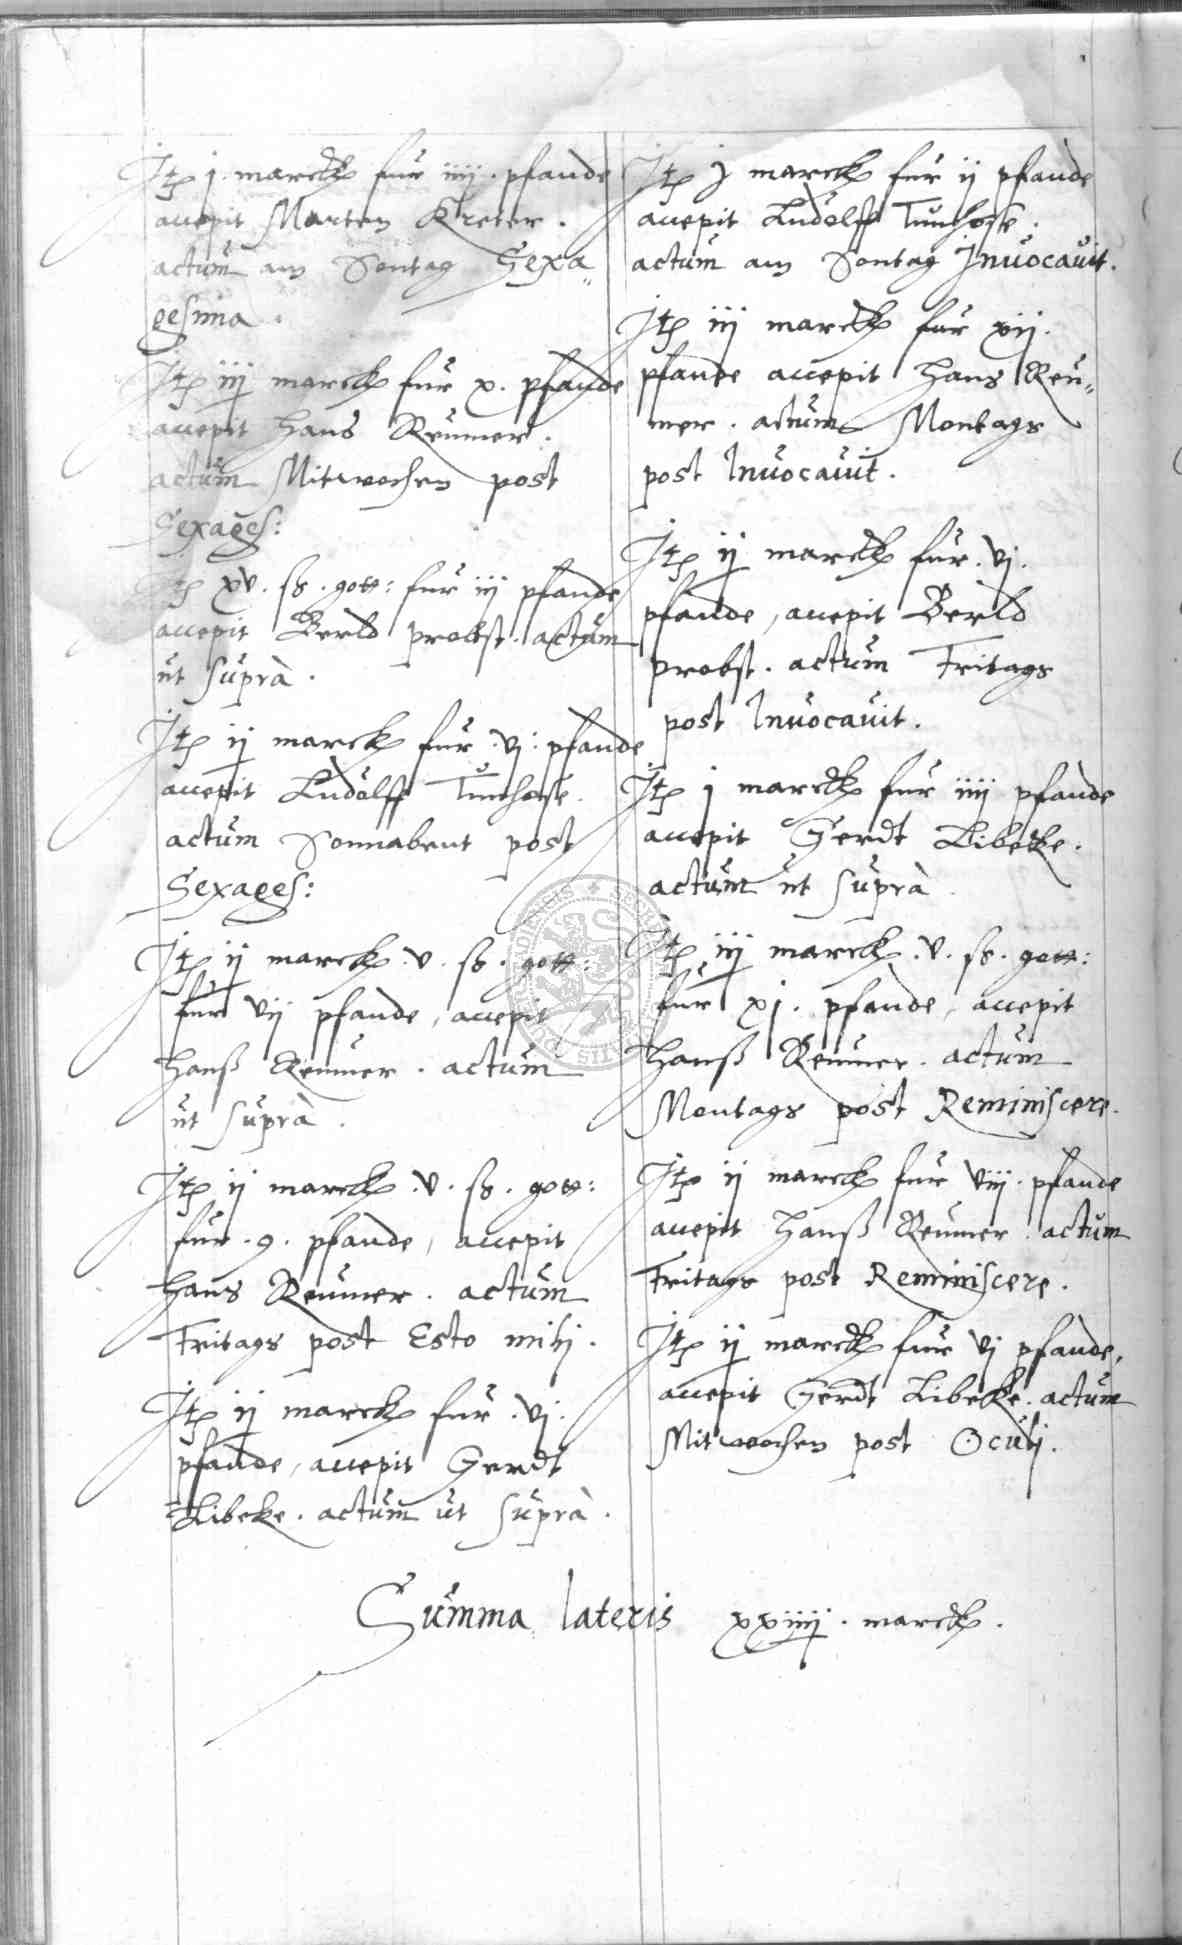 Jtē j. marck fur iiij. pfande
accepit Marten Kreter.
actum am Sontag Sexa„
gesima.
Jtē iij marck fur x. pfande
accepit Hans Reumer.
actum Mitwochen post
Sexages:
Jtē xv. ß. gott: fur iij pfande
accepit Berld probst. actum
ut suprà.
Jtē ij marck fur .vj. pfande
accepit Ludolff Tunhose.
actum Sonnabent post
Sexages:
Jtē ij marck .v. ß. gott:
fur vij pfande, accepit
Hanß Reumer. actum
ut suprà.
Jtē ij marck .v. ß. gott:
fur .9. pfande, accepit
Hans Reumer. actum
Fritags post Esto mihj.
Jtē ij marck fur .vj.
pfande, accepit Gerdt
Libeke. actum ut suprà.
Jtē j marck fur ij pfande
accepit Ludolff Tunhose.
actum am Sontag Jnuocauit.
Jtē iij marck fur xij.
pfande accepit Hans Reu„
mer. actum Montags
post Inuocauit.
Jtē ij marck fur .vj.
pfande, accepit Berld
probst. actum Fritags
post Inuocauit.
Jtē j marck fur iiij pfande
accepit Gerdt Libeke.
actum ut suprà.
Jtē iij marck .v. ß. gott:
fur xj. pfande, accepit
Hanß Reumer. actum
Montags post Reminiscere.
Jtē ij marck fur viij. pfande
accepit Hanß Reumer. actum
Fritags post Reminiscere.
Jtē ij marck fur vj pfande,
accepit Gerdt Libeke. actum
Mitwochen post Oculj.
Summa lateris xxiiij. marck.